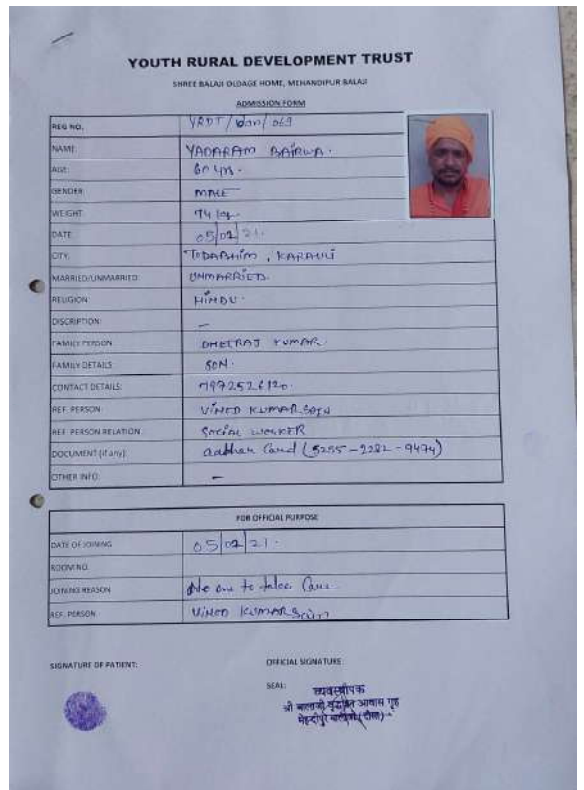 YOUTH RURAL DEVELOPMENT TRUST
SHREE BALAJI OLDAGE HOME, MEHANDIPUR BALAJI
ADMISSION FORM
REG NO. YRDT/ /069
NAME: YADARAM BAIRWA.
AGE: 60 yrs.
GENDER MALE
WEIGHT 74 kg
DATE 05/02/21.
CITY: TODABHIM, KARAULI
MARRIED/UNMARRIED: UNMARRIED.
RELIGION HINDU.
DISCRIPTION: —
FAMILY PERSON DHEERAJ KUMAR.
FAMILY DETAILS SON.
CONTACT DETAILS: 7972526120.
REF. PERSON VINOD KUMAR SAIN
REF. PERSON RELATION SOCIAL WORKER
DOCUMENT (if any): aadhar Card (5255-2282-9474)
OTHER INFO: —
FOR OFFICIAL PURPOSE
DATE OF JOINING 05/02/21.
ROOM NO.
JOINING REASON No one to take Care
REF. PERSON VINOD KUMAR Sain
SIGNATURE OF PATIENT:
OFFICIAL SIGNATURE
SEAL:
व्यवस्थापक
श्री बालाजी आवास गृह
मेहन्दीपुर बालाजी (दौसा)